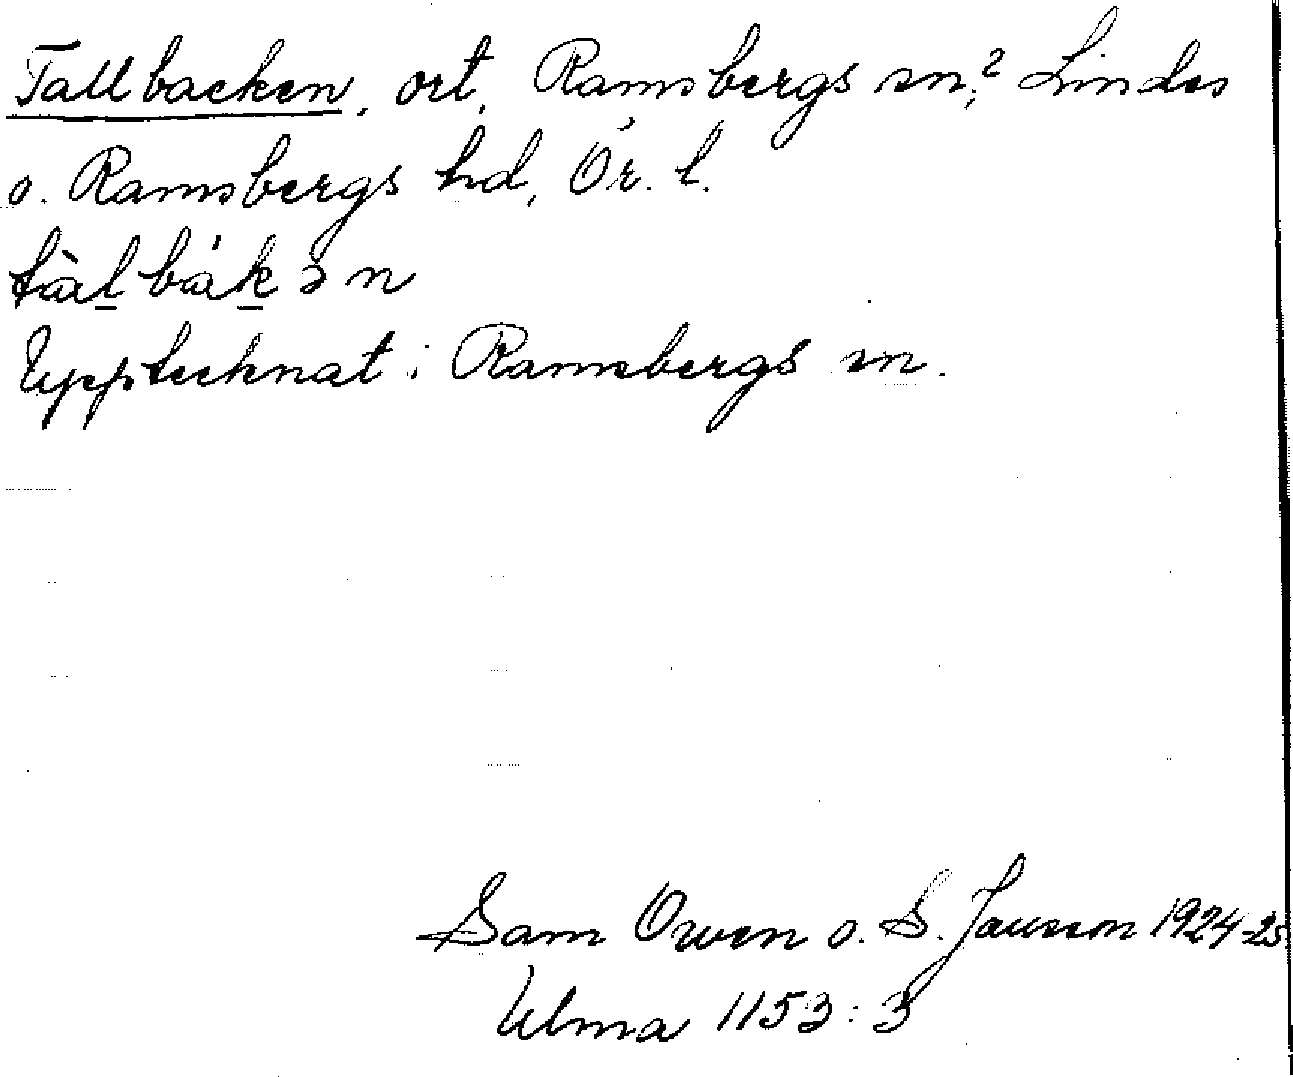 Tallbacken, ort, Ramsbergs sn,? Lindes
o. Ramsbergs hd, Ör. l.
tàl̲bák̲ən
Upptecknat i Ramsbergs sn.
Sam Owen o. S. Jansson 1924-25
Ulma 1153:3